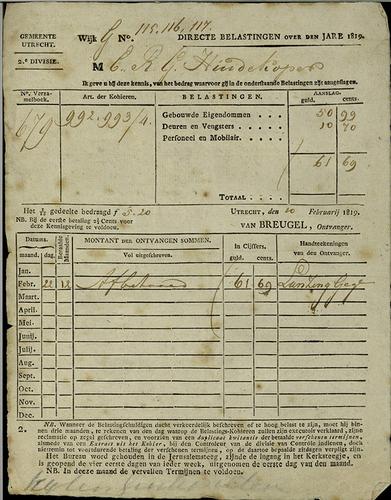 GEMEENTE
UTRECHT.
2.e DIVISIE.
Wijk G No. 115.116.117.
DIRECTE BELASTINGEN OVER DEN JARE 1819.
M E. R. G. Hindekoper
Ik geve u bij deze kennis, van het bedrag waarvoor gij in de onderstaande Belastingen zijt aangeslagen.
No. Verza-
melboek.
Art. der Kohieren.
BELASTINGEN.
AANSLAG.
guld. cents.
679 992.993/4.
Gebouwde Eigendommen 50 99
Deuren en Vengsters 10 70
Personeel en Mobilair.
61 69
TOTAAL
Het 1/12 gedeelte bedraagd f 5.20
NB. Bij de eerste betaling 2½ Cents voor
deze Kennisgeving te voldoen.
UTRECHT, den 20 Februarij 1819.
VAN BREUGEL, Ontvanger.
DATUMS.
maand. dag.
Betaalde Maanden.
MONTANT DER ONTVANGEN SOMMEN.
Vol uitgeschreven.
In Cijffers.
guld. cents.
Handteekeningen
van den Ontvanger.
Jan.
Febr. 22 12 Afbetaald 61 69
Maart.
April.
Mei.
Junij.
Julij.
Aug.
Sept.
Oct.
Nov.
Dec.
2.
NB. Wanneer de Belastingschuldigen dacht verkeerdelijk beschreven of te hoog belast te zijn, moet hij bin-
nen drie maanden, te rekenen van den dag waarop de Belastings-Kohieren zullen zijn executoir verklaard, zijne
reclamatie op zegel geschreven, en voorzien van een duplicaat kwitantie der betaalde verschenen termijnen,
alsmede van een Extract uit het Kohier, bij den Controleur van de divisie van Contrôle indienen, doch
niettemin tot voortdurende betaling der verschenen termijnen, op de bepaalde tijden verpligt zijn.
Het Bureau word gehouden in de Jerusalemsteeg, zijnde de ingang in het Kerksteegje, en
is geopend de vier eerste dagen van ieder week, uitgenomen de eerste dag van den maand.
NB. In deze maand te vervallen Termijnen te voldoen.